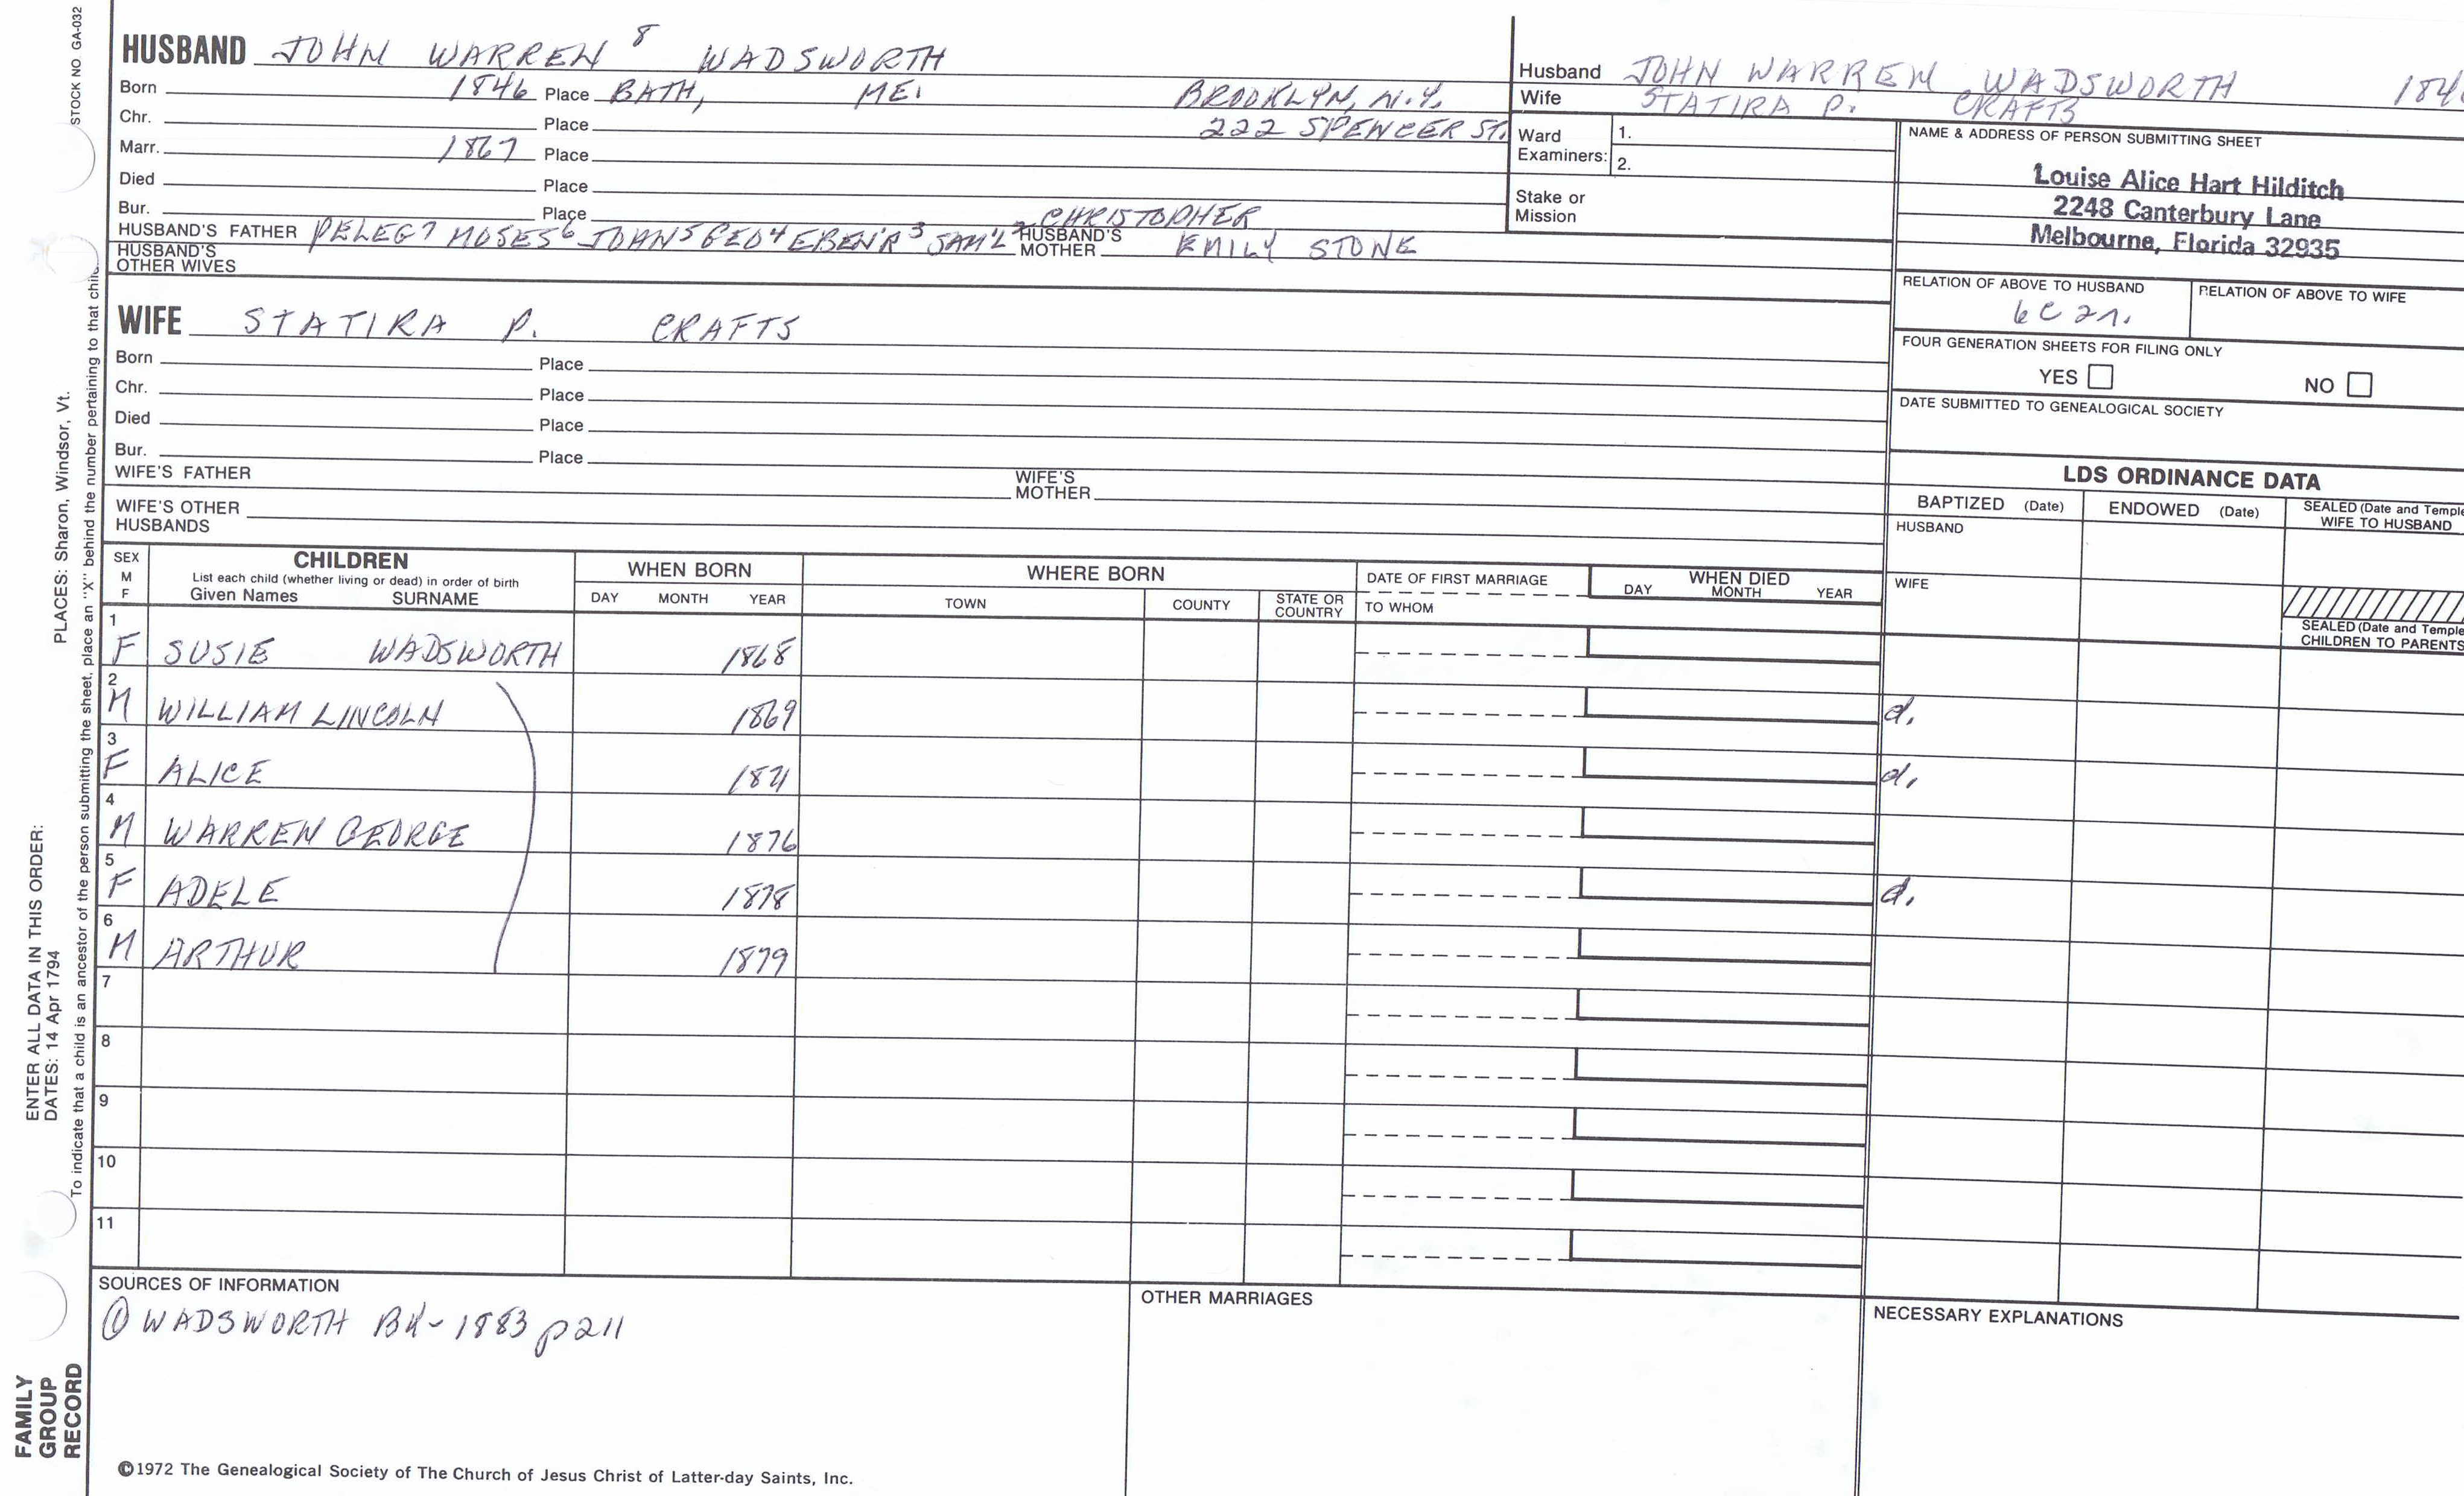 STOCK NO GA-032
HUSBAND JOHN WARREN 8 WADSWORTH
Born 1846 Place BATH, ME. BROOKLYN, N.Y.
Chr. Place 222 SPENCER ST.
Marr. 1867 Place
Died Place
Bur. Place CHRISTOPHER
HUSBAND'S FATHER PELEG7 MOSES6 JOHN5 GEO4 EBEN'R3 SAM'L2 HUSBAND'S MOTHER EMILY STONE
HUSBAND'S OTHER WIVES
WIFE STATIRA P. CRAFTS
Born Place
Chr. Place
Died Place
Bur. Place
WIFE'S FATHER WIFE'S MOTHER
WIFE'S OTHER HUSBANDS
Husband JOHN WARREN WADSWORTH 184
Wife STATIRA P. CRAFTS
Ward Examiners: 1.
2.
Stake or Mission
NAME & ADDRESS OF PERSON SUBMITTING SHEET
Louise Alice Hart Hilditch
2248 Canterbury Lane
Melbourne, Florida 32935
RELATION OF ABOVE TO HUSBAND RELATION OF ABOVE TO WIFE
6C 2r.
FOUR GENERATION SHEETS FOR FILING ONLY
YES NO
DATE SUBMITTED TO GENEALOGICAL SOCIETY
LDS ORDINANCE DATA
BAPTIZED (Date) ENDOWED (Date) SEALED (Date and Temple
WIFE TO HUSBAND
HUSBAND
WIFE
SEALED (Date and Temple
CHILDREN TO PARENTS
SEX M F CHILDREN WHEN BORN WHERE BORN DATE OF FIRST MARRIAGE WHEN DIED
List each child (whether living or dead) in order of birth
Given Names SURNAME DAY MONTH YEAR TOWN COUNTY STATE OR COUNTRY TO WHOM DAY MONTH YEAR
1 F SUSIE WADSWORTH 1868
2 M WILLIAM LINCOLN 1869 d.
3 F ALICE 1871 d.
4 M WARREN GEORGE 1876
5 F ADELE 1878 d.
6 M ARTHUR 1879
7
8
9
10
11
SOURCES OF INFORMATION OTHER MARRIAGES NECESSARY EXPLANATIONS
① WADSWORTH BK - 1883 p 211
©1972 The Genealogical Society of The Church of Jesus Christ of Latter-day Saints, Inc.
FAMILY
GROUP
RECORD
ENTER ALL DATA IN THIS ORDER:
DATES: 14 Apr 1794
PLACES: Sharon, Windsor, Vt.
To indicate that a child is an ancestor of the person submitting the sheet, place an "X" behind the number pertaining to that chil